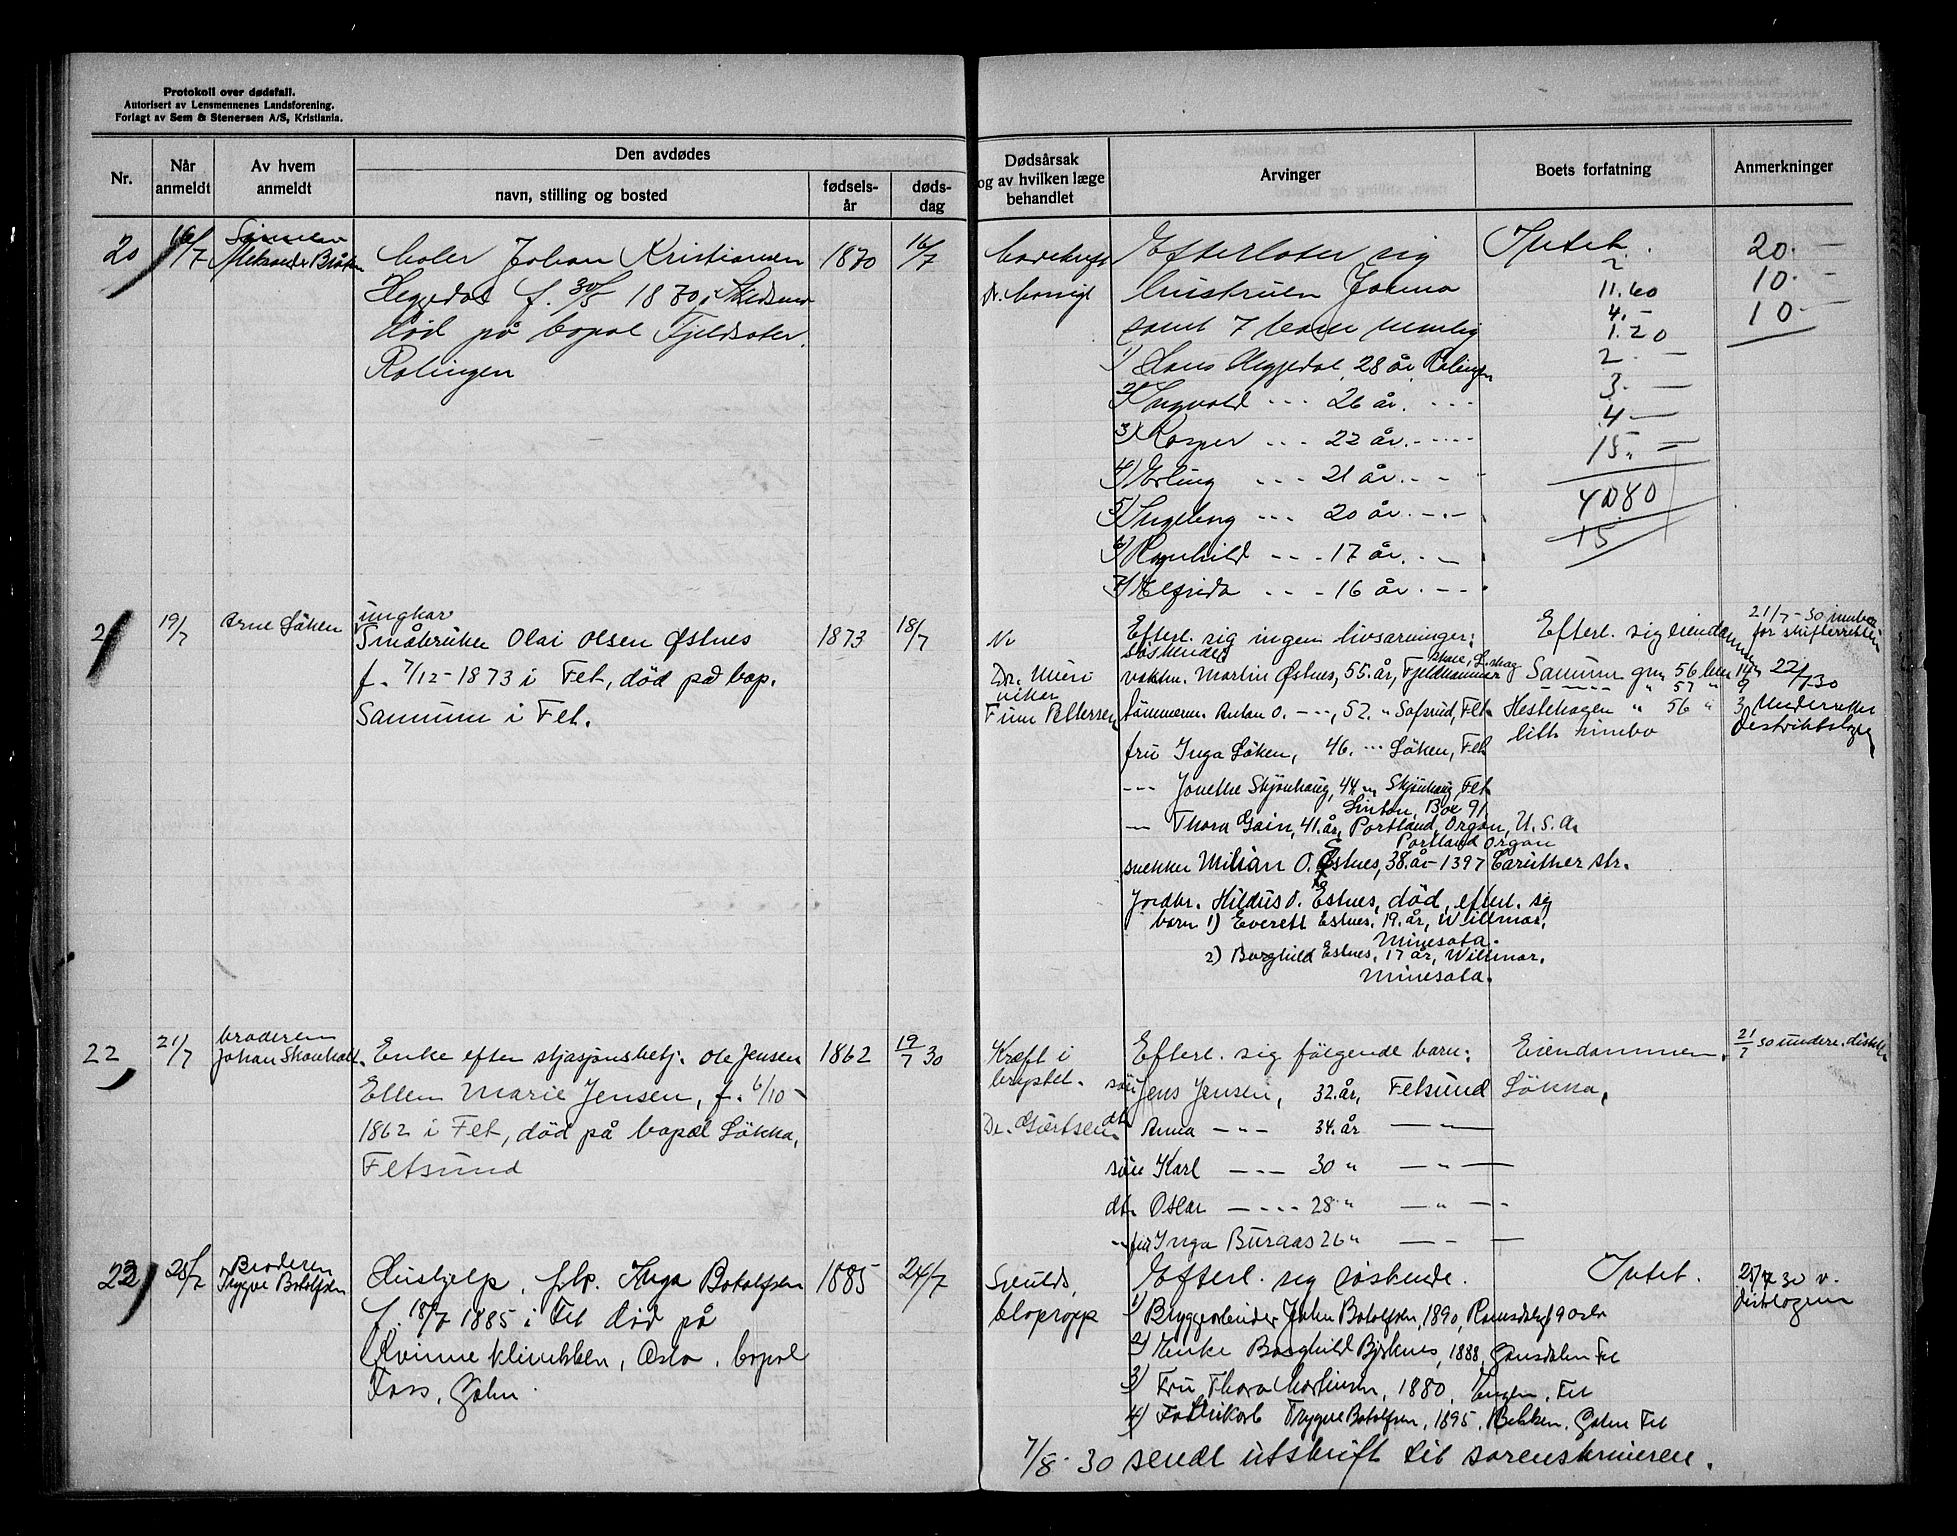 Protokoll over dødsfall.
Autorisert av Lensmennenes Landsforening.
Forlagt av Sem & Stenersen A/S, Kristiania.
Nr.
Når anmeldt
Av hvem anmeldt
Den avdødes
navn, stilling og bosted
fødsels-år
døds-dag
Dødsårsak og av hvilken læge behandlet
Arvinger
Boets forfatning
Anmerkninger
20
16/7
Maler Johan Kristiansen
Heggedal f. 30/5 1870 i
død på bopæl Fjeldsæter,
Rælingen
1870
16/7
Dr.
Efterlater sig
hustruen
samt 7 barn nemlig
1) Hans Heggedal, 28 år, Rælingen
2) Ingvald --- 26 år. ---
3) Kasper --- 22 år. ---
4) Erling --- 21 år. --
5) Ingeborg --- 20 år. --
6) Ragnhild --- 17 år. --
7) Elfrida --- 16 år. --
Intet.
2
11.60
4.-
1.20
2. -
3. -
4 -
15. -
4080
15
20. -
10. -
10 -
2
19/7
Arne Løken
ungkar
Småbruker Olai Olsen Østnes
f. 7/12-1873 i Fet, død på bop.
Sannum i Fet.
1873
18/7
Dr.
vikar
Finn Pettersen
Efterl. sig ingen livsarvinger;
søskende:
Martin Østnes, 55. år, Fjeldhammer
tømmerm. Anton O. ---, 52. " Fet.
fru Inga Løken, 46. --- Løken, Fet
--- Skjønhaug, 44 --- Skjønhaug, Fet
Linton, Box 91,
--- Thora Gain, 41. år, Portland, Orgon, U.S.A.
Portland Orgon
snekker Milian O. Estnes, 38. år - 1397 Caruther str.
Jordbr. Hildus O. Estnes, død, efterl. sig
barn 1) Everett Estnes, 19. år, Willmar,
Minesota.
2) Borghild Estnes, 17 år, Willmar.
Minesota.
Efterl. sig eiendommen
Sannum gnr. 56 bnr. 14
----- " 57 " 9
Hestehagen " 56 " 3
litt innbo
21/7-30
for skifteretten
22/7 30
Underretter
Distriktslegen
22
21/7
broderen
Johan Skovholt.
Enke efter stasjonsbetj. Ole Jensen
Ellen Marie Jensen, f. 6/10-
1862 i Fet, død på bopæl Løkka,
Fetsund
1862
19/7 30
Kreft i
brystet.
Dr. Giertsen
Efterl. sig følgende barn:
søn Jens Jensen, 32. år, Fetsund
dt. Anna --- 34. år ---
søn Karl --- 30 " ---
dt. Oskar --- 28 " ---
fru Inga Buraas 26 " ---
Eiendommen
Løkka,
21/7 30 undere.
22
25/7
Broderen
Trygve Botolfsen
Hushjelp, frk. Inga Botolfsen
f. 18/7 1885 i Fet død på
Kvinneklinikken, Oslo, bopæl
Foss, Gan.
1885
24/7
Svulst,
blopropp
Efterl. sig søskende.
1) Bryggearbeider John Botolfsen, 1890, Ramsdalsgt 9 Oslo
2) Enke Borghild Bjerknes, 1888, Gansdalen Fet
3) Fru Thora Martinsen, 1880, Fet
4) Trygve Botolfsen, 1895, Bekken, Fet
Intet.
25/7 30 v.
distr.legen
7/8-30 sendt utskrift til sorenskriveren.